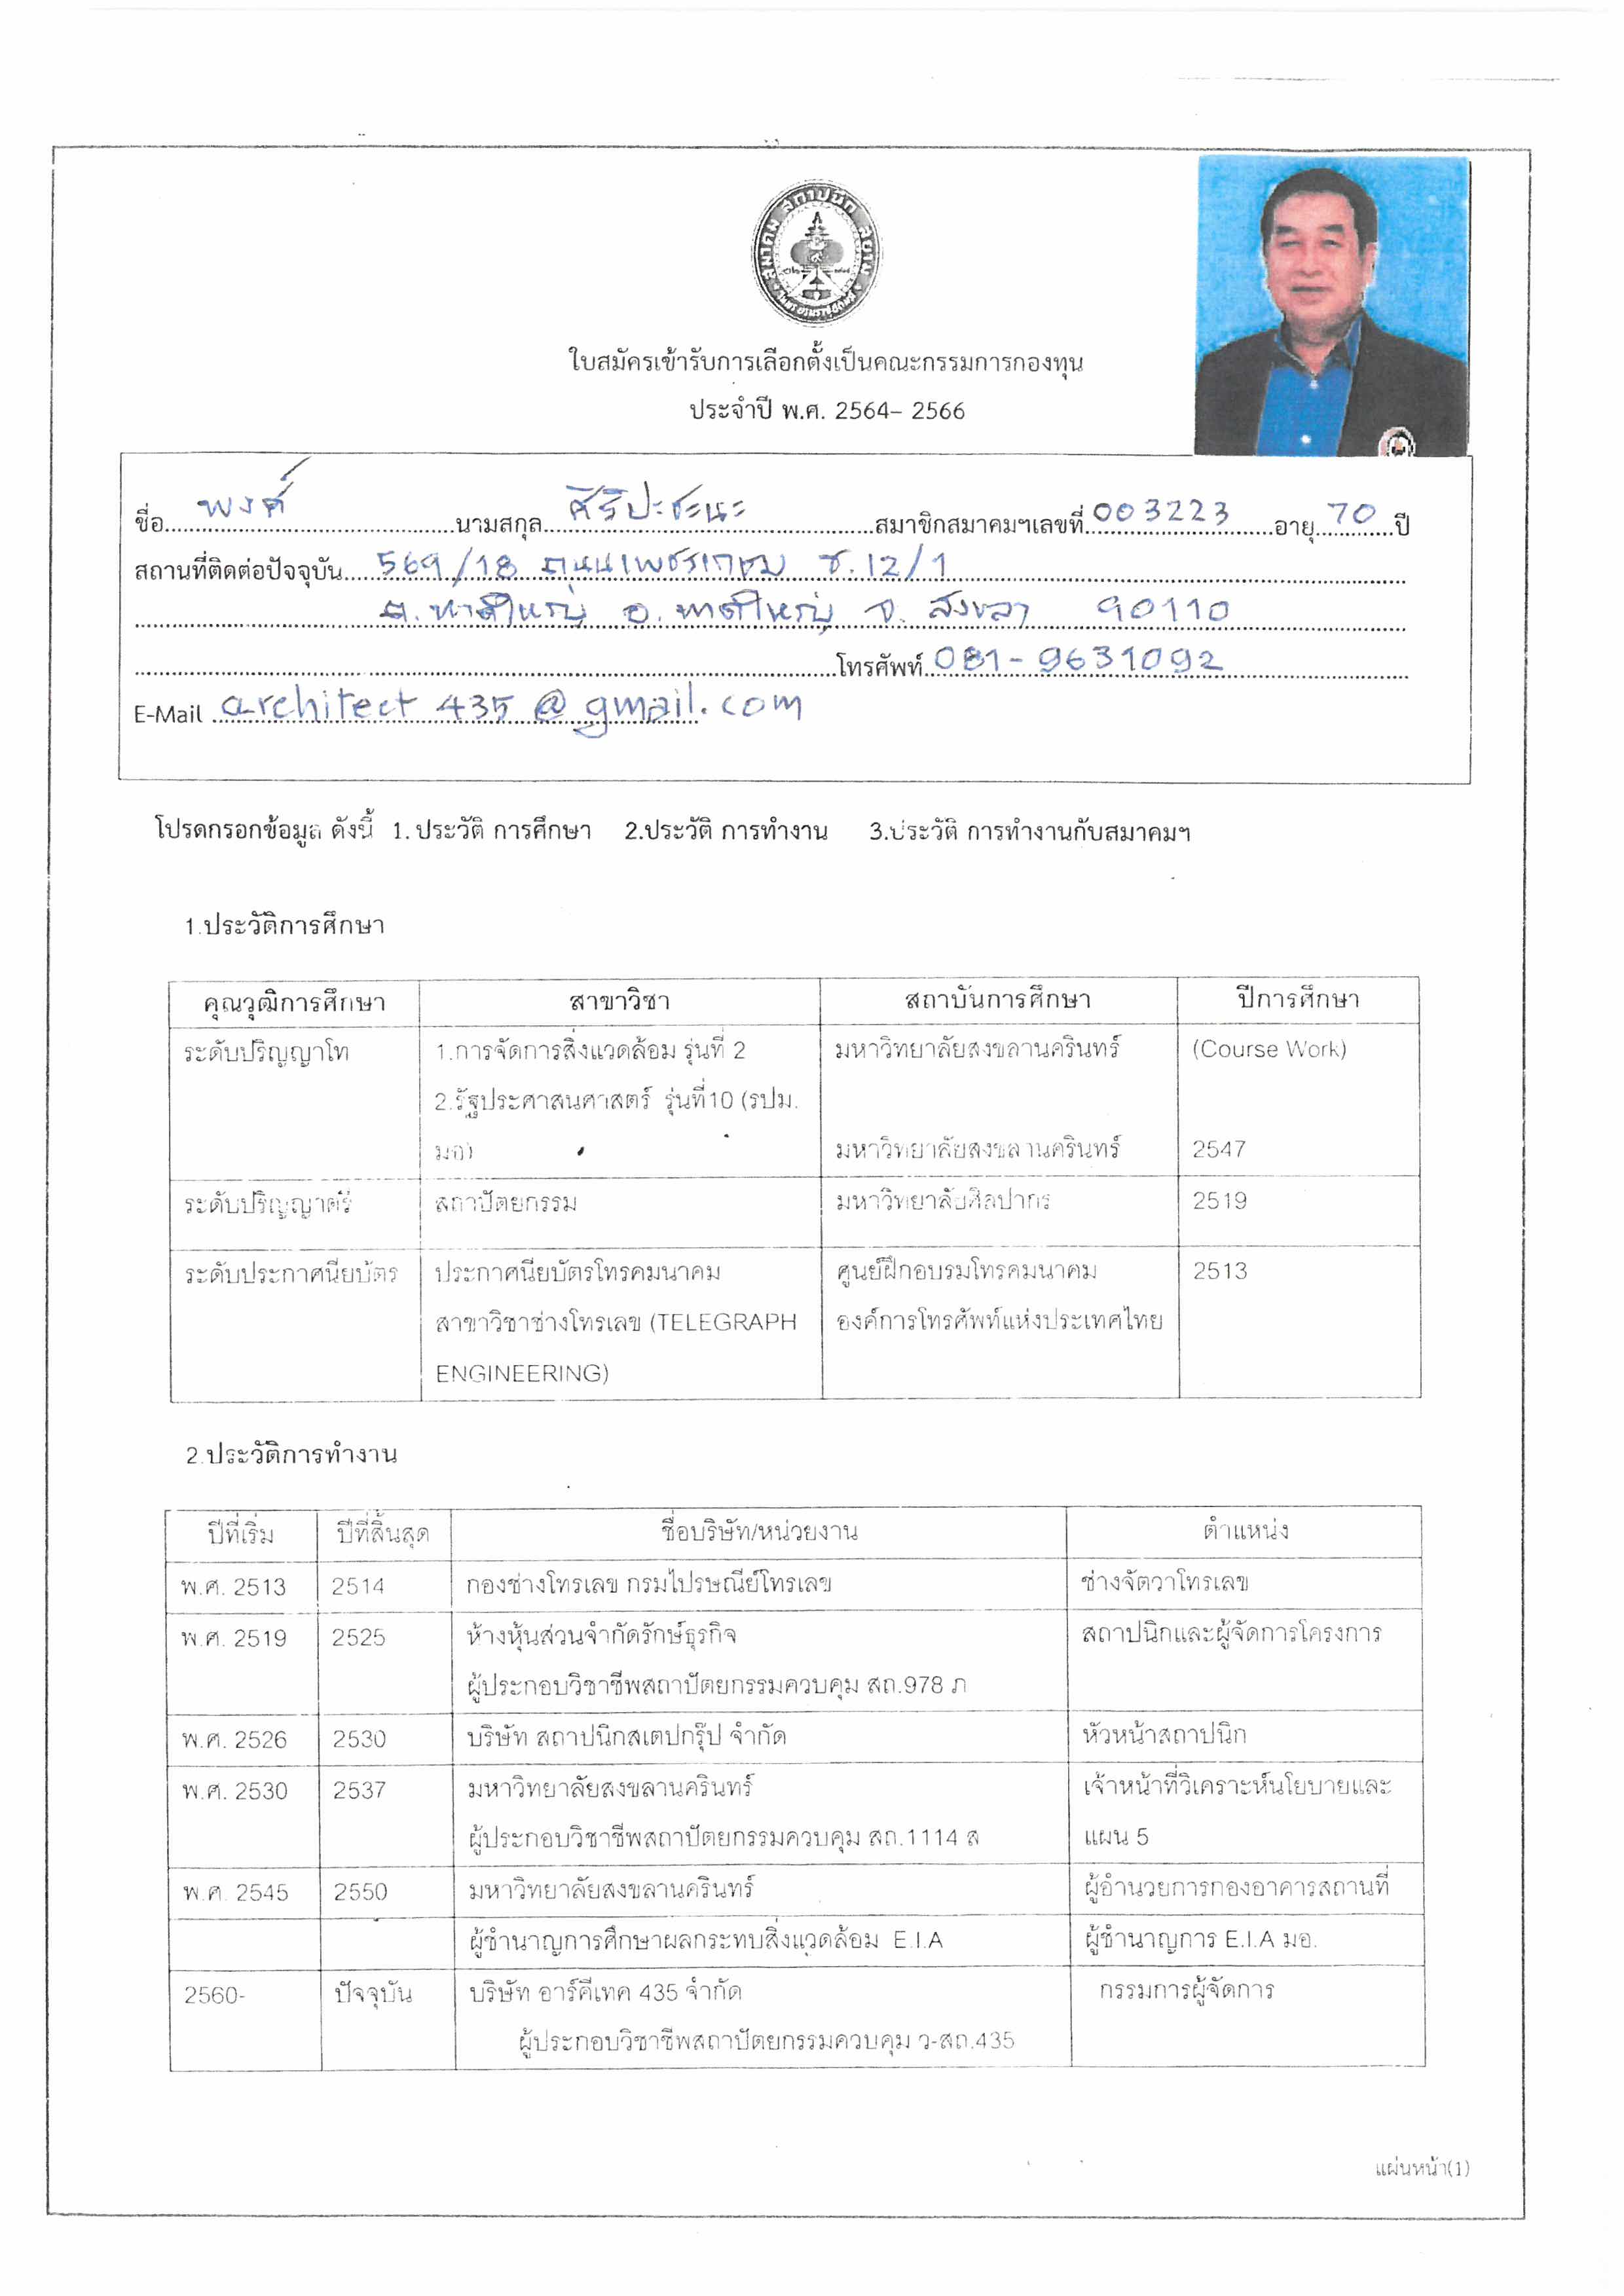 สมาคม สถาปนิก สยาม
ใบสมัครเข้ารับการเลือกตั้งเป็นคณะกรรมการกองทุน
ประจำปี พ.ศ. 2564– 2566
ชื่อ พงศ์ นามสกุล ศิริปะชะนะ สมาชิกสมาคมฯเลขที่ 003223 อายุ 70 ปี
สถานที่ติดต่อปัจจุบัน 569/18 ถนนเพชรเกษม ซ.12/1
ต.หาดใหญ่ อ.หาดใหญ่ จ.สงขลา 90110
โทรศัพท์ 081-9631092
E-Mail architect 435 @ gmail.com
โปรดกรอกข้อมูล ดังนี้ 1. ประวัติ การศึกษา 2.ประวัติ การทำงาน 3.ประวัติ การทำงานกับสมาคมฯ
1.ประวัติการศึกษา
คุณวุฒิการศึกษา สาขาวิชา สถาบันการศึกษา ปีการศึกษา
ระดับปริญญาโท 1.การจัดการสิ่งแวดล้อม รุ่นที่ 2 มหาวิทยาลัยสงขลานครินทร์ (Course Work)
2.รัฐประศาสนศาสตร์ รุ่นที่10 (รปม.
มอ) มหาวิทยาลัยสงขลานครินทร์ 2547
ระดับปริญญาตรี สถาปัตยกรรม มหาวิทยาลัยศิลปากร 2519
ระดับประกาศนียบัตร ประกาศนียบัตรโทรคมนาคม ศูนย์ฝึกอบรมโทรคมนาคม 2513
สาขาวิชาช่างโทรเลข (TELEGRAPH องค์การโทรศัพท์แห่งประเทศไทย
ENGINEERING)
2.ประวัติการทำงาน
ปีที่เริ่ม ปีที่สิ้นสุด ชื่อบริษัท/หน่วยงาน ตำแหน่ง
พ.ศ. 2513 2514 กองช่างโทรเลข กรมไปรษณีย์โทรเลข ช่างจัตวาโทรเลข
พ.ศ. 2519 2525 ห้างหุ้นส่วนจำกัดรักษ์ธุรกิจ สถาปนิกและผู้จัดการโครงการ
ผู้ประกอบวิชาชีพสถาปัตยกรรมควบคุม สถ.978 ภ
พ.ศ. 2526 2530 บริษัท สถาปนิกสเตปกรุ๊ป จำกัด หัวหน้าสถาปนิก
พ.ศ. 2530 2537 มหาวิทยาลัยสงขลานครินทร์ เจ้าหน้าที่วิเคราะห์นโยบายและ
ผู้ประกอบวิชาชีพสถาปัตยกรรมควบคุม สถ.1114 ส แผน 5
พ.ศ. 2545 2550 มหาวิทยาลัยสงขลานครินทร์ ผู้อำนวยการกองอาคารสถานที่
ผู้ชำนาญการศึกษาผลกระทบสิ่งแวดล้อม E.I.A ผู้ชำนาญการ E.I.A มอ.
2560- ปัจจุบัน บริษัท อาร์คีเทค 435 จำกัด กรรมการผู้จัดการ
ผู้ประกอบวิชาชีพสถาปัตยกรรมควบคุม ว-สถ.435
แผ่นหน้า(1)